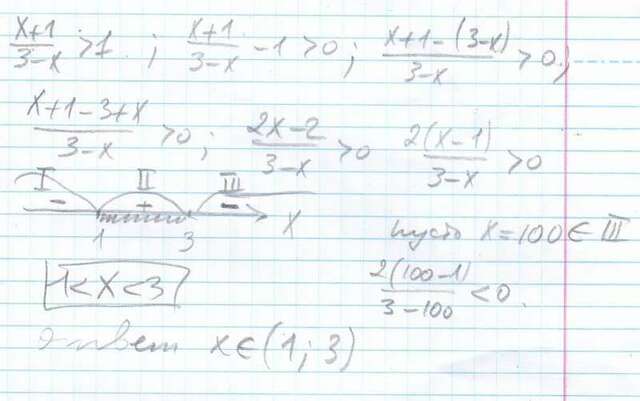 x+1/3-x >1 ; x+1/3-x -1>0 ; x+1-(3-x)/3-x >0 ;
x+1-3+x/3-x >0 ; 2x-2/3-x >0 2(x-1)/3-x >0
I II III
- + -
1 3 x
пусть x=100 ∈ III
1<x<3
2(100-1)/3-100 <0.
Ответ x∈(1;3)